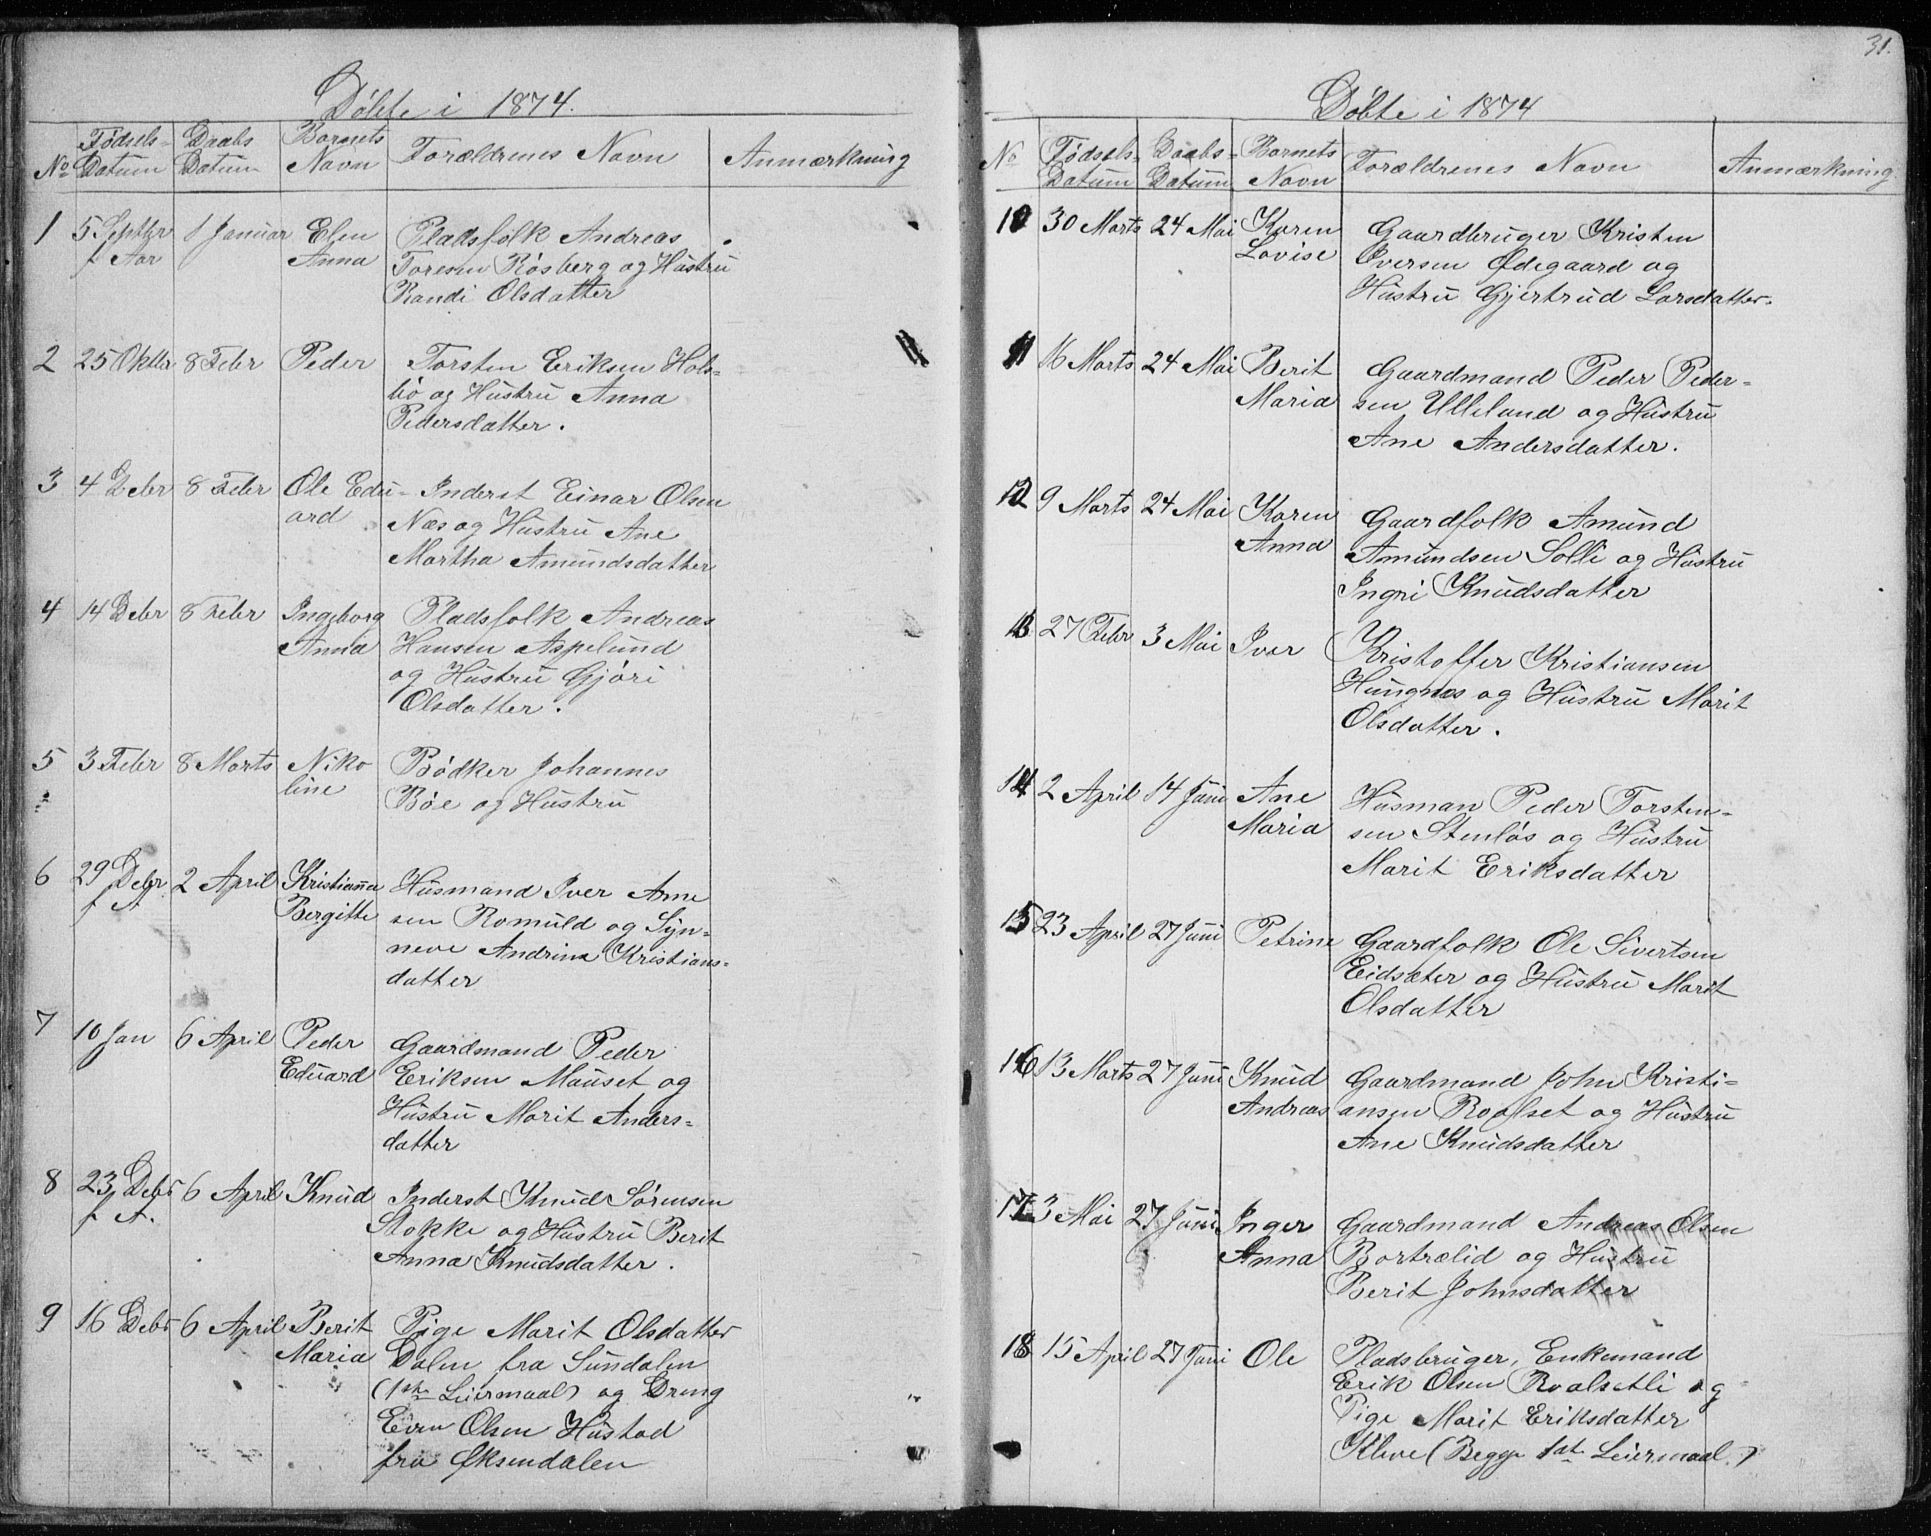 Døbte i 1874.
No Fødsels-Datum Daabs Datum Barnets Navn Forældrenes Navn Anmærkning
1 5 Septbr f Aar 1 Januar Elen Anna Pladsfolk Andreas
Toresen Røsberg og Hustru
Randi Olsdatter
2 25 Oktbr 8 Febr Peder Torsten Eriksen Hols-
bø og Hustru Anna
Pedersdatter.
3 4 Debr 8 Febr Ole Edu-ard Inderst Einar Olsen
Næs og Hustru Ane
Martha Amundsdatter
4 14 Debr 8 Febr Ingeborg Anna Pladsfolk Andreas
Hansen Aspelund
og Hustru Gjøri
Olsdatter.
5 3 Febr 8 Marts Niko line Bødker Johannes
Bøe og Hustru
6 29 Debr f A. 2 April Kristianna Bergitte Husmand Iver Arne
sen Romuld og Syn-
neve Andrina Kristians-
datter
7 10 Jan 6 April Peder Eduard Gaardmand Peder
Eriksen Mauset og
Hustru Marit Anders-
datter
8 23 Debr f A. 6 April Knud Inderst Knud Sørensen
Stokke og Hustru Berit
Anna Knudsdatter.
9 16 Debr 6 April Berit Maria Pige Marit Olsdatter
Dalen fra Sundalen
(1ste Leiermaal) og Dreng
Even Olsen Hustad
fra Øksendalen
31.
Døbte i 1874
No Fødsels-Datum Daabs-Datum Barnets Navn Forældrenes Navn Anmærkning
10 30 Marts 24 Mai Karen Lovise Gaardbruger Kristen
Iversen Ødegaard og
Hustru Gjertrud Larsdatter.
11 16 Marts 24 Mai Berit Maria Gaardmand Peder Peder-
sen Ulleland og Hustru
Ane Andersdatter.
12 9 Marts 24 Mai Karen Anna Gaardfolk Amund
Amundsen Solli og Hustru
Ingri Knudsdatter
13 27 Febr 3 Mai Iver Kristoffer Kristiansen
Hungnes og Hustru Marit
Olsdatter.
14 2 April 14 Juni Ane Maria Husman Peder Torsten-
sen Stenløs og Hustru
Marit Eriksdatter
15 23 April 27 Juni Petrine Gaardfolk Ole Sivertsen
Eidsæter og Hustru Marit
Olsdatter
16 13 Marts 27 Juni Knud Andreas Gaardmand John Kristi-
ansen Roalset og Hustru
Ane Knudsdatter
17 3 Mai 27 Juni Inger Anna Gaardmand Andreas Olsen
Bortrælid og Hustru
Berit Johnsdatter
18 15 April 27 Juni Ole Pladsbruger, Enkemand
Erik Olsen Roalsetli og
Pige Marit Eriksdatter
Kleve (Begge 1ste Leiermaal.)